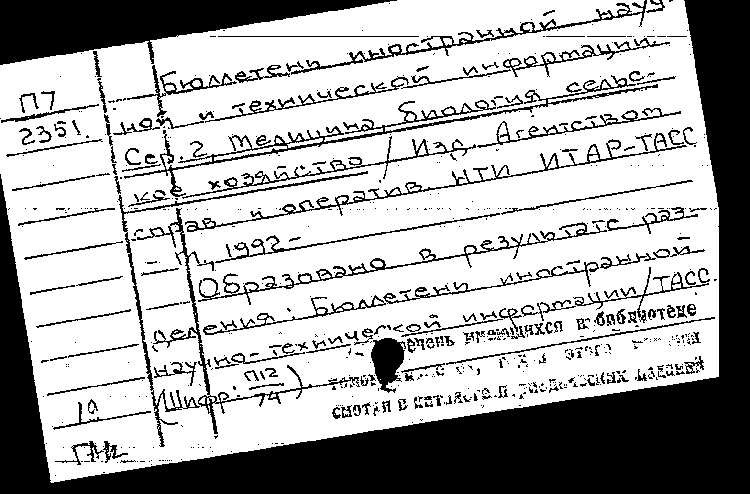 Бюллетень иностранной науч-
П7
2351.
ной и технической информации.
Сер. 2, Медицина, биология, сельс-
кое хозяйство / Изд. Агентством
справ и оператив НТИ ИТАР-ТАСС
- М., 1992 -
Образовано в результате раз-
деления: Бюллетень иностранной
научно-технической информации/ТАСС.
(Шифр: П12/74).
перечень имеющихся в библиотеке
этого
смотри в каталоге периодических изданий
10